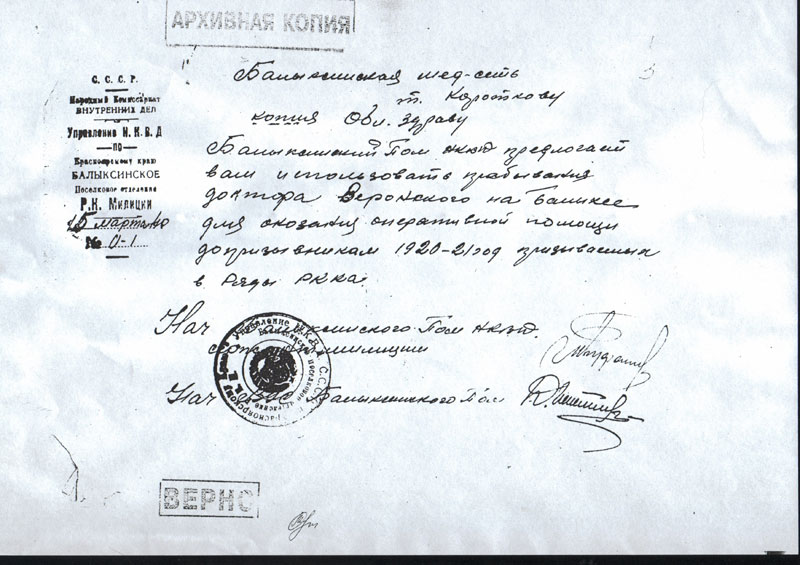 АРХИВНАЯ КОПИЯ
С. С. С. Р.
Народный Комиссариат
ВНУТРЕННИХ ДЕЛ
Управление Н. К. В. Д
—ПО—
Красноярскому краю
БАЛЫКСИНСКОЕ
Поселковое отделение
Р.К. Милиции
15 марта 40
№ 0-1
Балыксинская мед-сеть
т. Короткову
копия Обл. Здраву
Балыксинский Пом НКВД предлогает
вам использовать прабывания
доктора на Балыксе
для оказания оперативной помощи
допризывникам 1920-21 год призываемых
в Ряды РККА.
Нач Балыксинского Пом НКВД.
милиции
Нач Балыксинского Пом
ВЕРНО